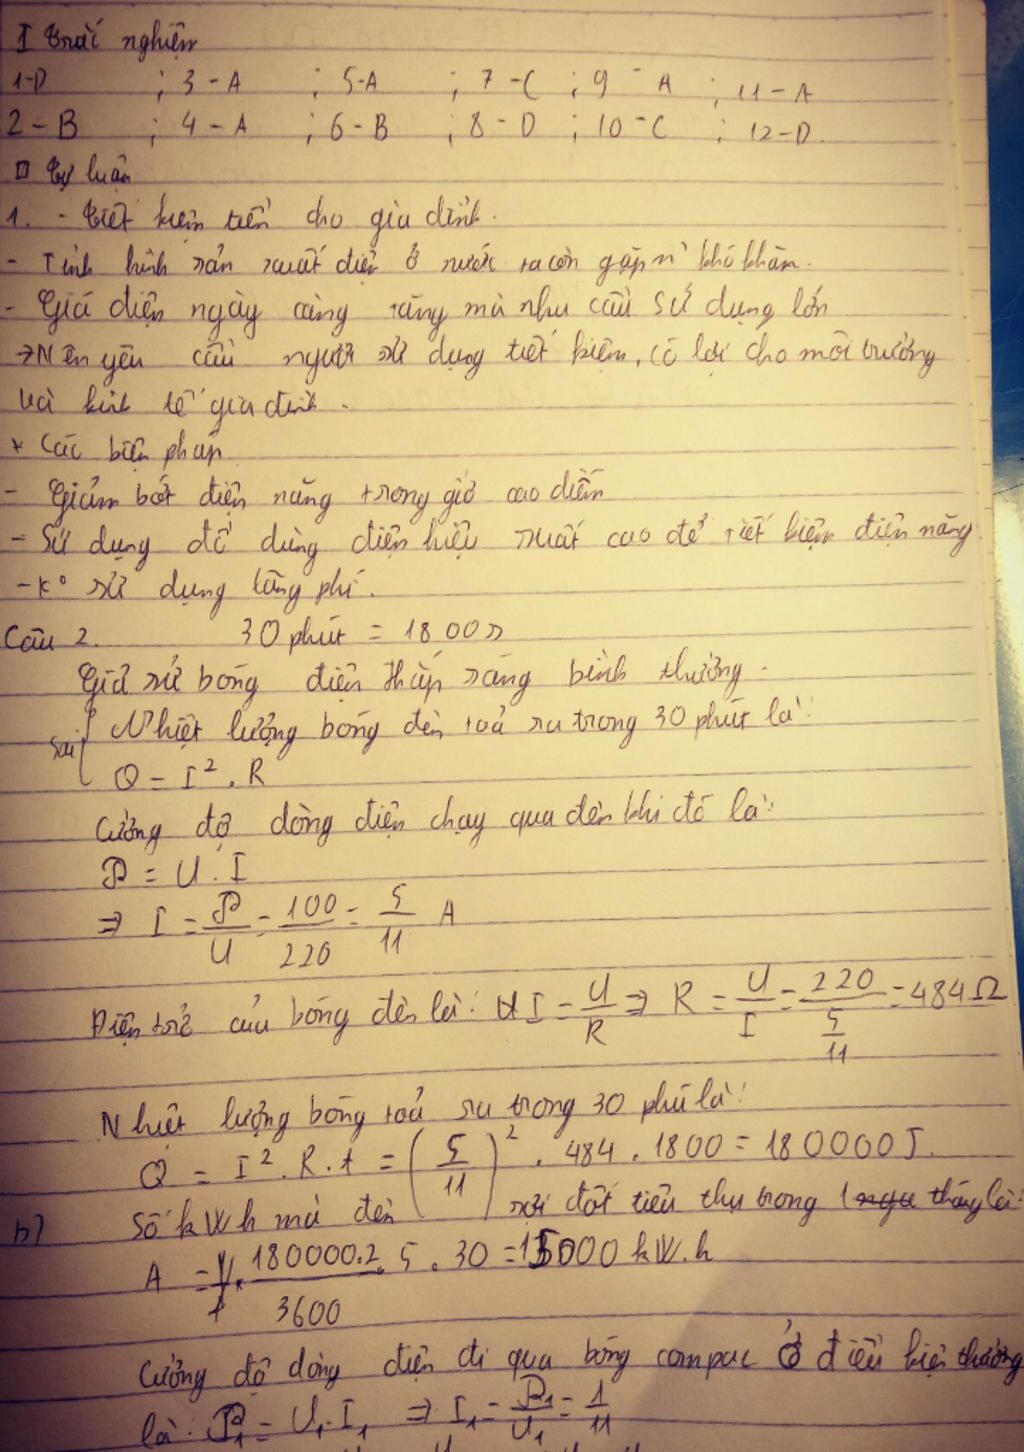 I Trắc nghiệm
1-D ; 3-A ; 5-A ; 7-C ; 9-A ; 11-A
2-B ; 4-A ; 6-B ; 8-D ; 10-C ; 12-D.
II Tự luận
1. - Tiết kiệm tiền cho gia đình.
- Tình hình sản xuất điện ở nước ta còn gặp n² khó khăn.
- Giá điện ngày càng tăng mà nhu cầu sử dụng lớn
→ Nên yêu cầu người sử dụng tiết kiệm, có lợi cho môi trường
và kinh tế gia đình.
* Các biện pháp
- Giảm bớt điện năng trong giờ cao điểm
- Sử dụng đồ dùng điện hiệu suất cao để tiết kiệm điện năng
- k° sử dụng lãng phí.
Câu 2. 30 phút = 1800s
Giả sử bóng điện thắp sáng bình thường.
sai { Nhiệt lượng bóng đèn toả ra trong 30 phút là:
Q = I². R
Cường độ dòng điện chạy qua đèn khi đó là:
P = U. I
⇒ I = P/U = 100/220 = 5/11 A
Điện trở của bóng đèn là: I = U/R ⇒ R = U/I = 220/(5/11) = 484Ω
Nhiệt lượng bóng toả ra trong 30 phú là:
Q = I². R. t = (5/11)². 484. 1800 = 180000J.
b) Số kWh mà đèn sợi đốt tiêu thụ trong 1 tháng là:
A = 180000.2/3600 . 5. 30 = 15000 kW.h
Cường độ dòng điện đi qua bóng compac ở điều kiện thường
là: P₁ = U₁. I₁ ⇒ I₁ = P₁/U₁ = 1/11